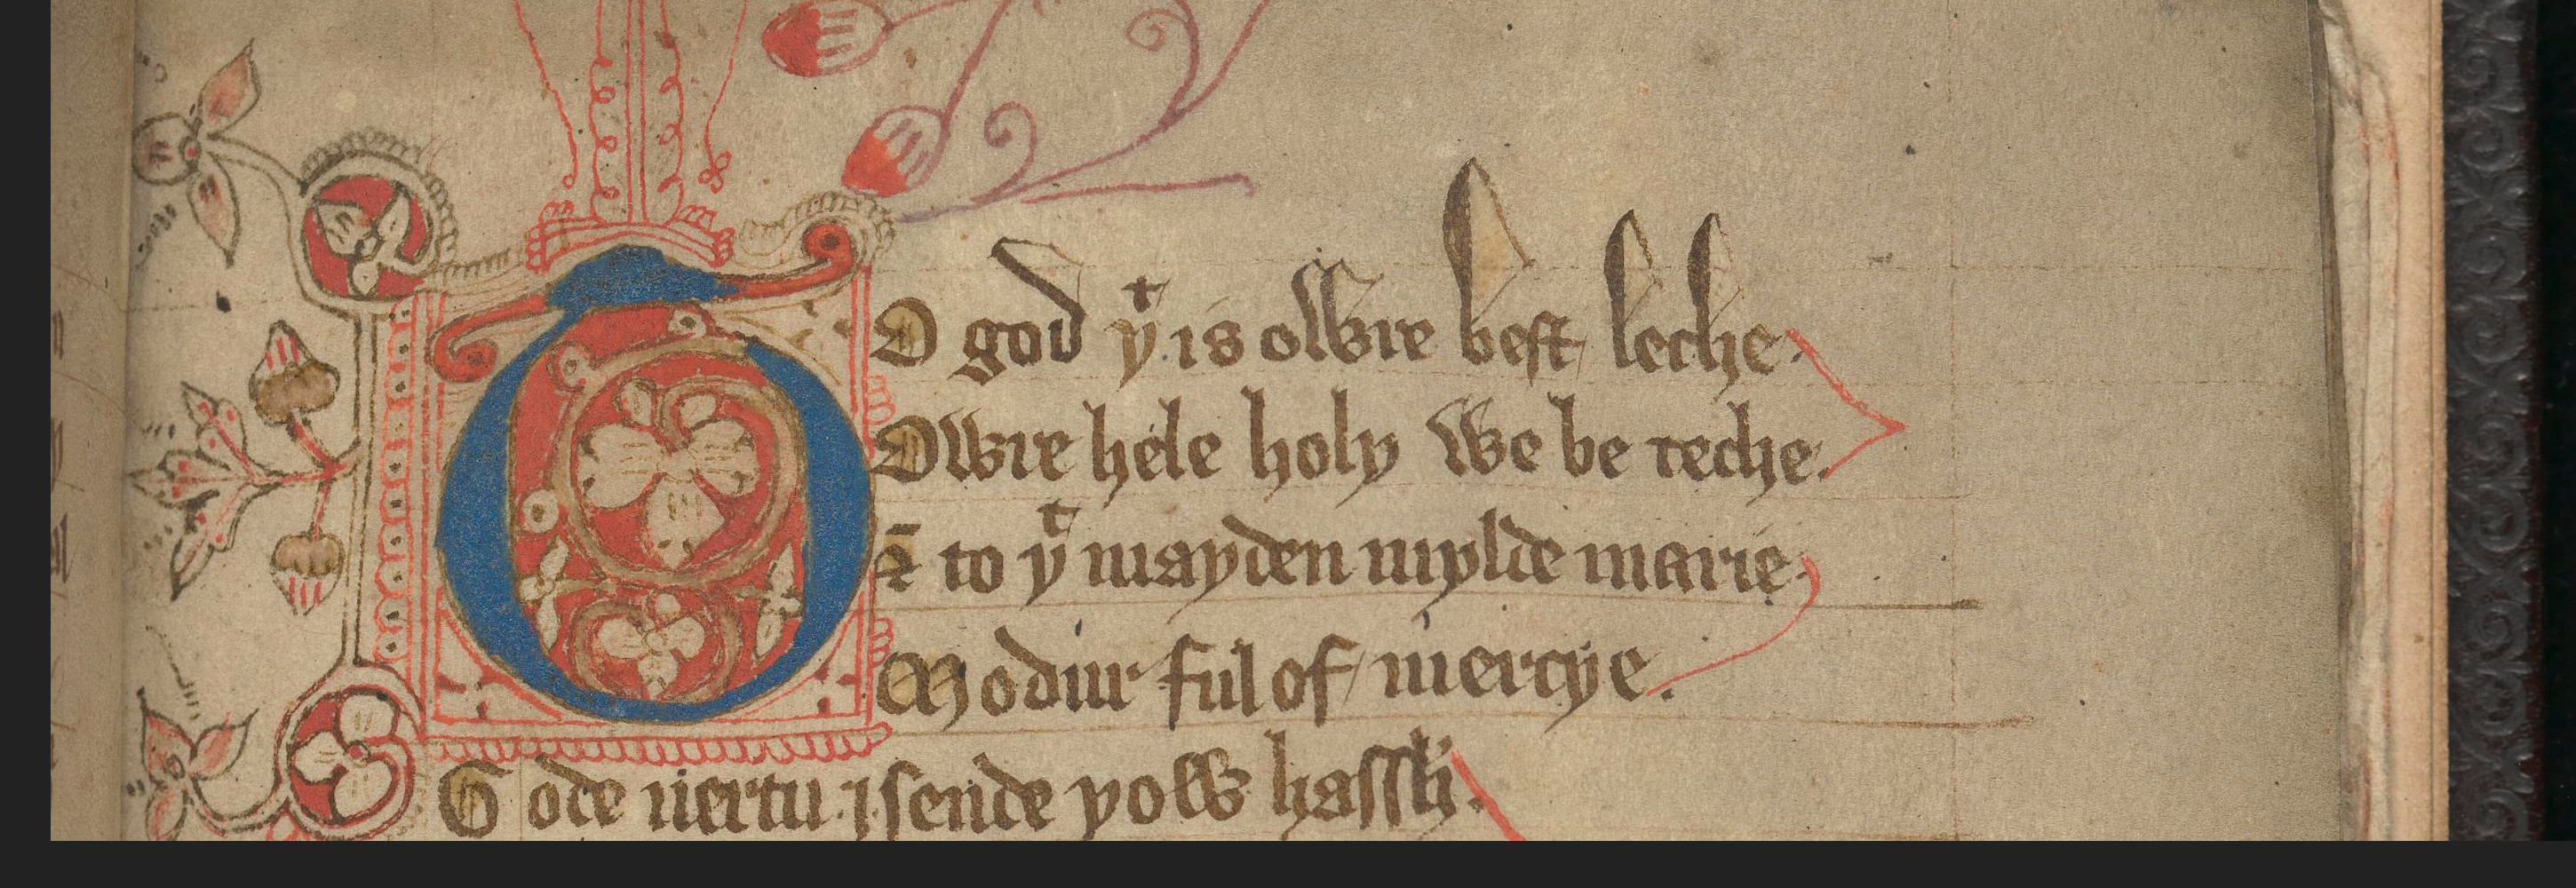 TO god yͭ is owre best leche
Owre hele holy we be teche.
& to yͭ mayden mylde marie
Modiur ful of mercye.
Gode uertu isende yow